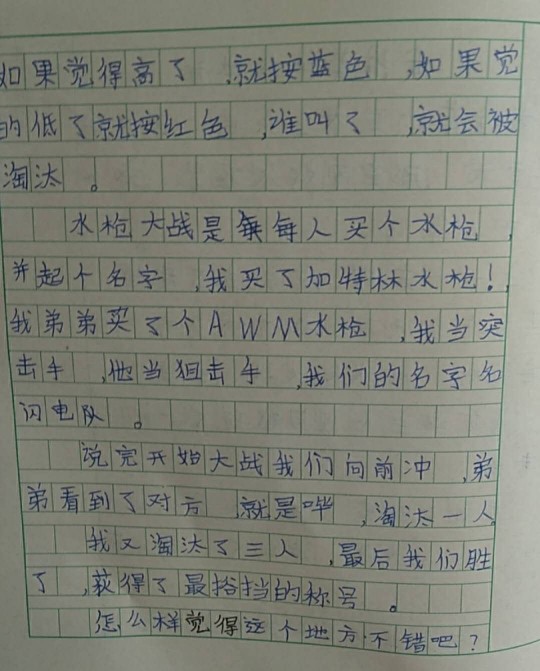 如果觉得高了,就按蓝色,如果觉
的低了就按红色,谁叫了,就会被
淘汰。
水枪大战是每人买个水枪,
并起个名字,我买了加特林水枪!,
我弟弟买了个AWM水枪,我当突
击手,他当狙击手,我们的名字名
闪电队。
说完开始大战我们向前冲,弟
弟看到了对方,就是哗,淘汰一人
我又淘汰了三人,最后我们胜
了,获得了最搭挡的称号。
怎么样觉得这个地方不错吧?